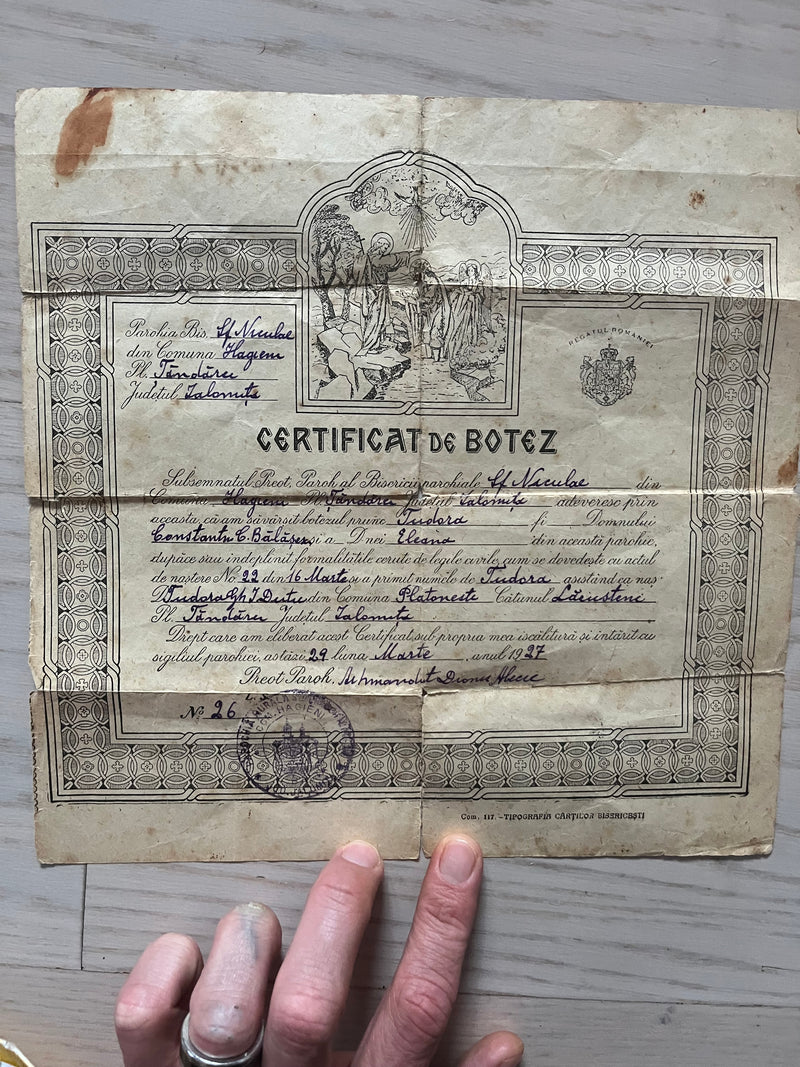 Parohia Bis. Sf Niculae
din Comuna Hagieni
Pl. Tăndărei
Județul Ialomița
REGATUL ROMANIEI
CERTIFICAT DE BOTEZ
Subsemnatul Preot, Paroh al Bisericii parohiale Sf Niculae din
Comuna Hagieni Pl. Țăndărei Județul Ialomița adeveresc prin
aceasta, că am săvârșit botezul prunc Tudora fi Domnului
Constantin C. Bălășes și a D-nei Eleana din această parohie,
dupăce s'au îndeplinit formalitățile cerute de legile civile, cum se dovedește cu actul
de naștere No. 22 din 16 Marte și a primit numele de Tudora asistând ca naș
D Tudora Gh I. Dutu din Comuna Platonesti Cătunul Lăcusteni
Pl. Tăndărei Județul Ialomița
Drept care am eliberat acest Certificat, sub propria mea iscălitură și întărit cu
sigiliul parohiei, astăzi 29 luna Marte, anul 1927
Preot Paroh,
No. 26
COM. HAGIENI
Com. 117. -TIPOGRAFIA CĂRȚILOR BISERICEȘTI